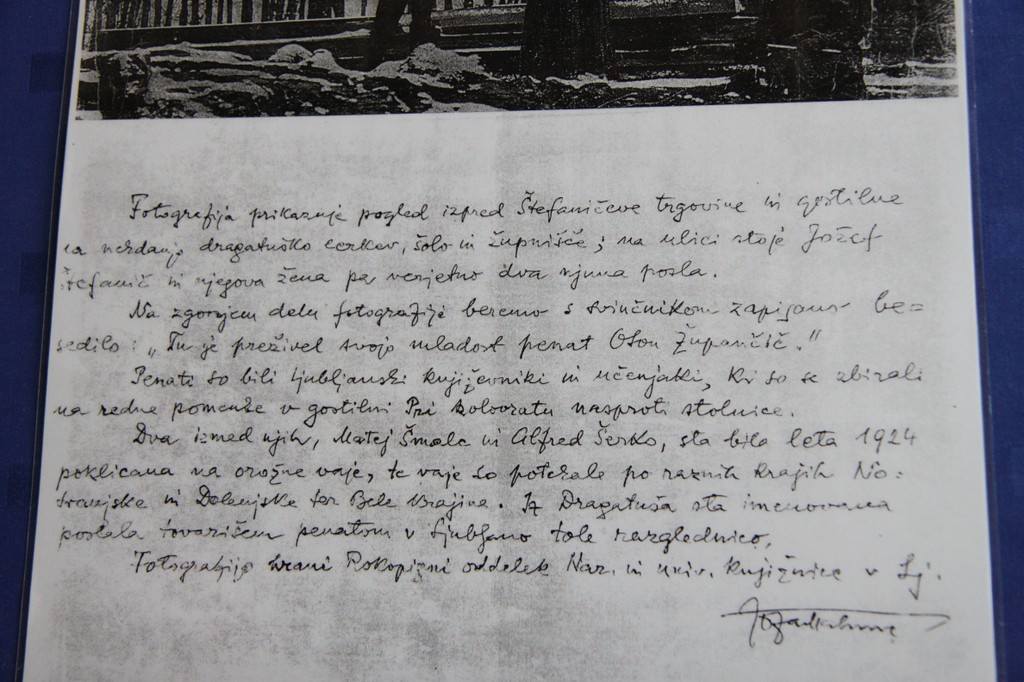 Fotografija prikazuje pogled izpred Štefaničeve trgovine in gostilne
na nekdanjo dragatuško cerkev, šolo in župnišče; na ulici stoje Jožef
Štefanič in njegova žena pa verjetno dva njuna posla.
Na zgornjem delu fotografije beremo s svinčnikom zapisano be=
sedilo: „Tu je preživel svojo mladost penat Oton Župančič."
Penati so bili ljubljanski književniki in učenjaki, ki so se zbirali
na redne pomenke v gostilni Pri Kolovratu nasproti stolnice.
Dva izmed njih, Matej Šmalc in Alfred Šerko, sta bila leta 1924
poklicana na orožne vaje, te vaje so potekale po raznih krajih No=
tranjske in Dolenjske ter Bele Krajine. Iz Dragatuša sta imenovana
poslala tovarišem penatom v Ljubljano tole razglednico.
Fotografijo hrani Rokopisni oddelek Nar. in univ. knjižnice v Lj.